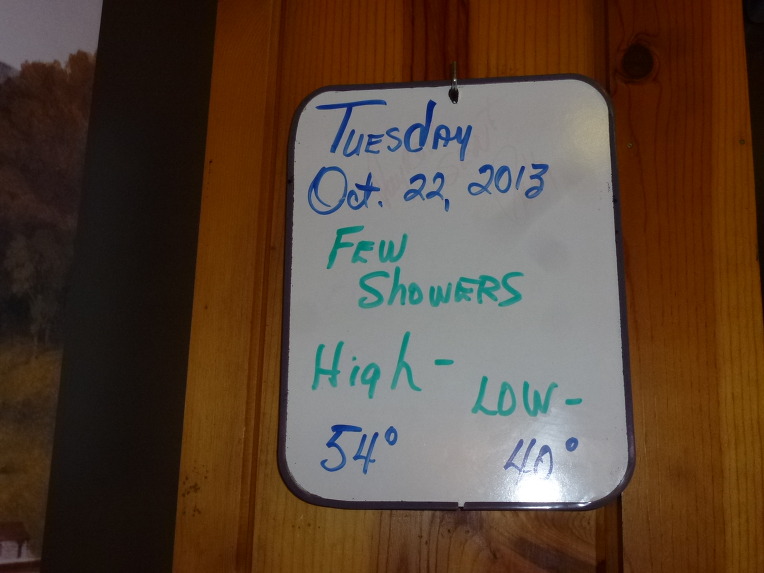 Tuesday
Oct. 22, 2013
Few
Showers
High -
Low -
54° 40°